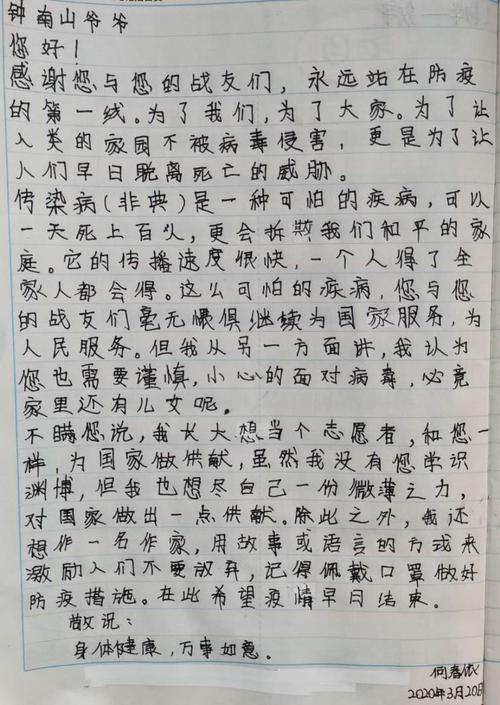 钟南山爷爷
您好！
感谢您与您的战友们，永远站在防疫
的第一线。为了我们，为了大家。为了让
人类的家园不被病毒侵害，更是为了让
人们早日脱离死亡的威胁。
传染病(非典)是一种可怕的疾病，可以
一天死上百人，更会拆散我们和平的家
庭。它的传播速度很快，一个人得了全
家人都会得。这么可怕的疾病，您与您
的战友们毫无惧俱继续为国家服务，为
人民服务。但我从另一方面讲，我认为
您也需要谨慎，小心的面对病毒，必竟
家里还有儿女呢。
不瞒您说，我长大想当个志愿者，和您一
样，为国家做供献，虽然我没有您学识
渊博，但我也想尽自己一份微薄之力，
对国家做出一点供献。除此之外，我还
想作一名作家，用故事或语言的方式来
激励人们不要放弃，记得佩戴口罩做好
防疫措施。在此希望疫情早日结束。
敬祝：
身体健康，万事如意。
何春依
2020年3月20日